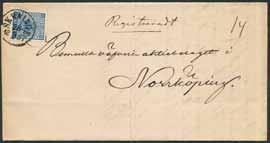 Registreradt
14
Bomulls väfveri aktiebolaget i
Norrköping.